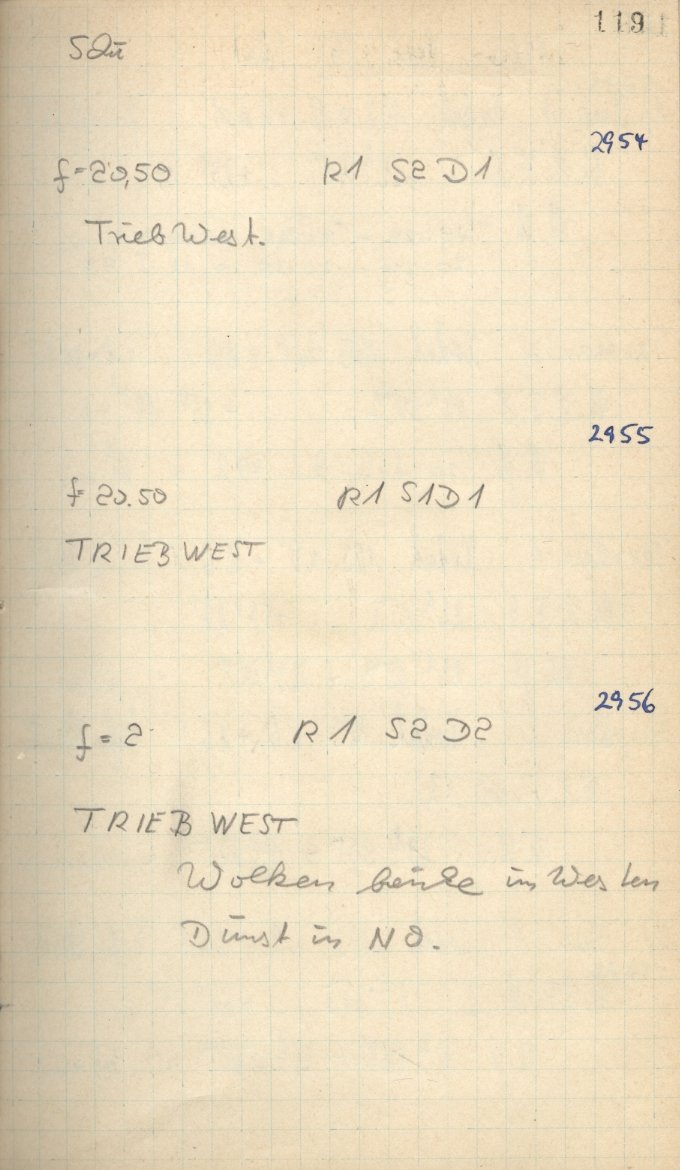 119
2954
f=20,50 R1 S2 D1
Trieb West.
2955
f=20.50 R1 S1 D1
TRIEB WEST
2956
f=2 R1 S2 D2
TRIEB WEST
Wolken bänke im Westen
Dunst in NO.